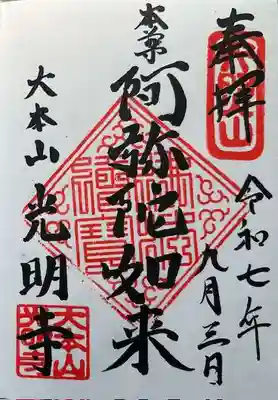 奉拝
令和七年
九月三日
本尊
阿弥陀如来
大本山
光明寺